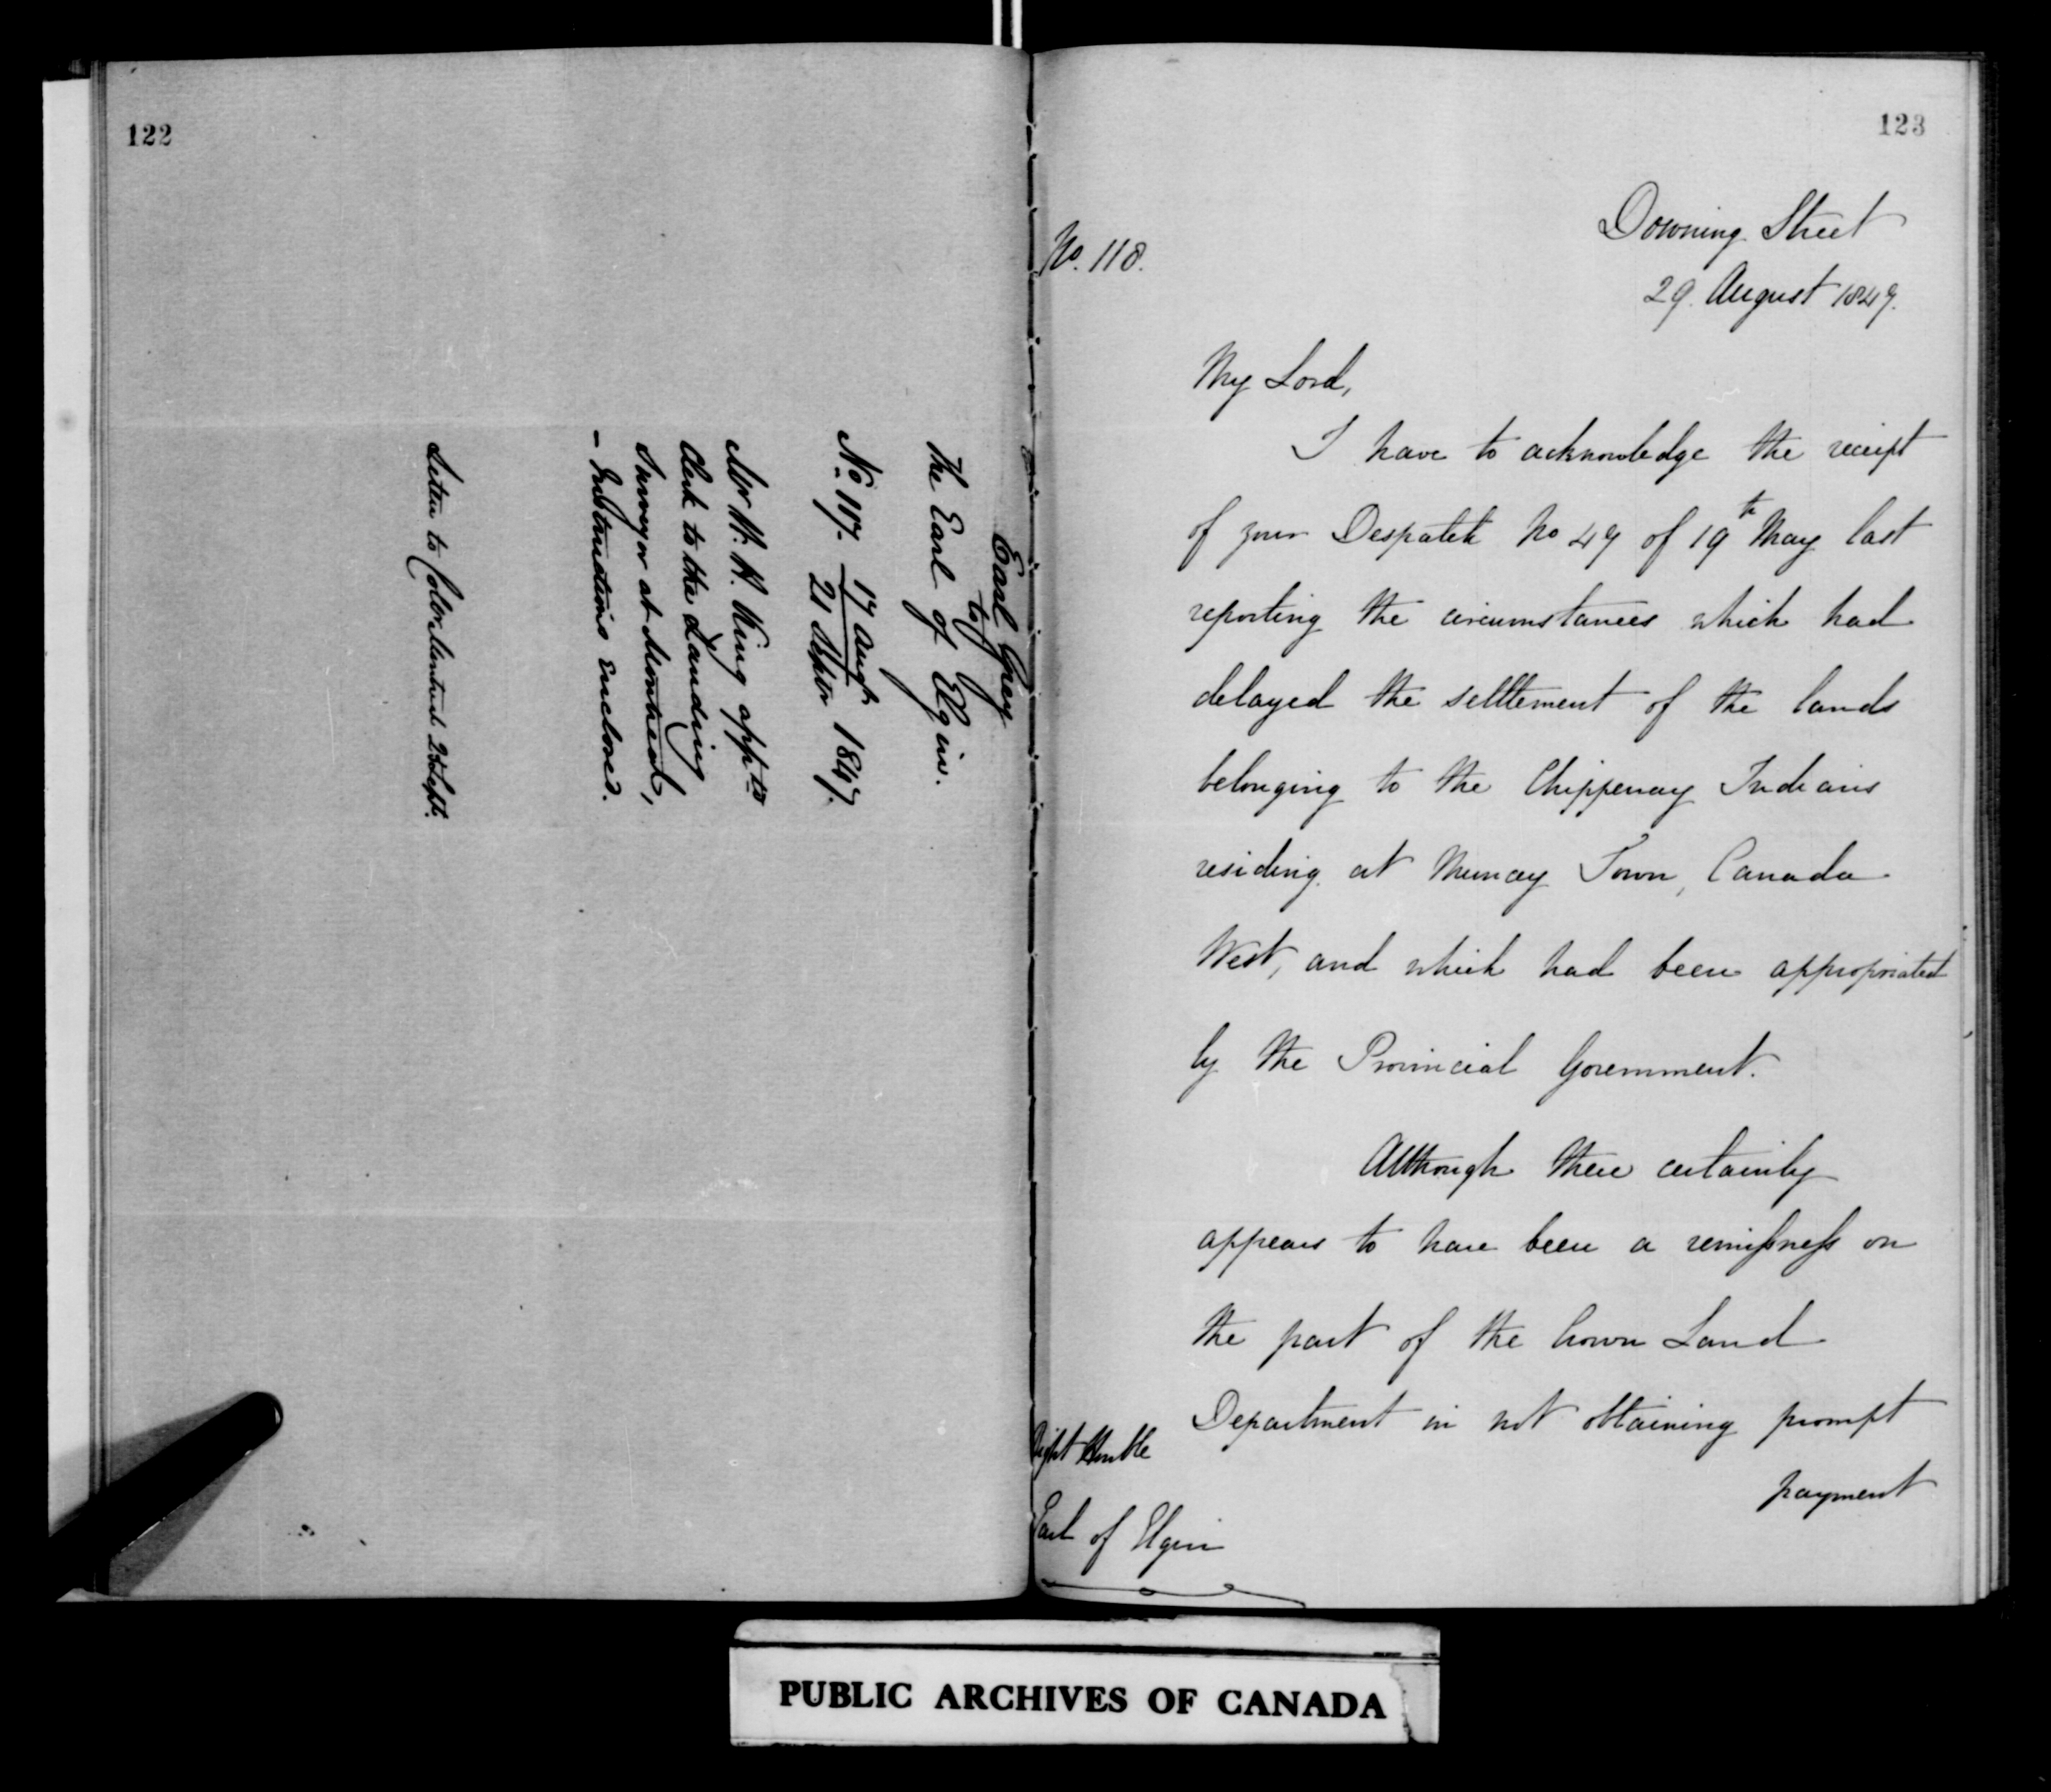 122
Earl Grey
to
The Earl of Elgin.
No 117. 17 Augt
21 Septr 1847.
Mr W. H. King apptd
Clerk to the Landing
Surveyor at Montreal,
- Instructions Enclosed.
Letter to
123
Downing Street
No. 118.
29. August 1847.
My Lord,
I have to acknowledge the receipt
of your Despatch No 47 of 19th May last
reporting the circumstances which had
delayed the settlement of the lands
belonging to the Chippeway Indians
residing at Muncey Town, Canada
West, and which had been appropriated
by the Provincial Government.
Although there certainly
appears to have been a remissness on
the part of the Crown Land
Department in not obtaining prompt
payment
Right Honble
Earl of Elgin
PUBLIC ARCHIVES OF CANADA